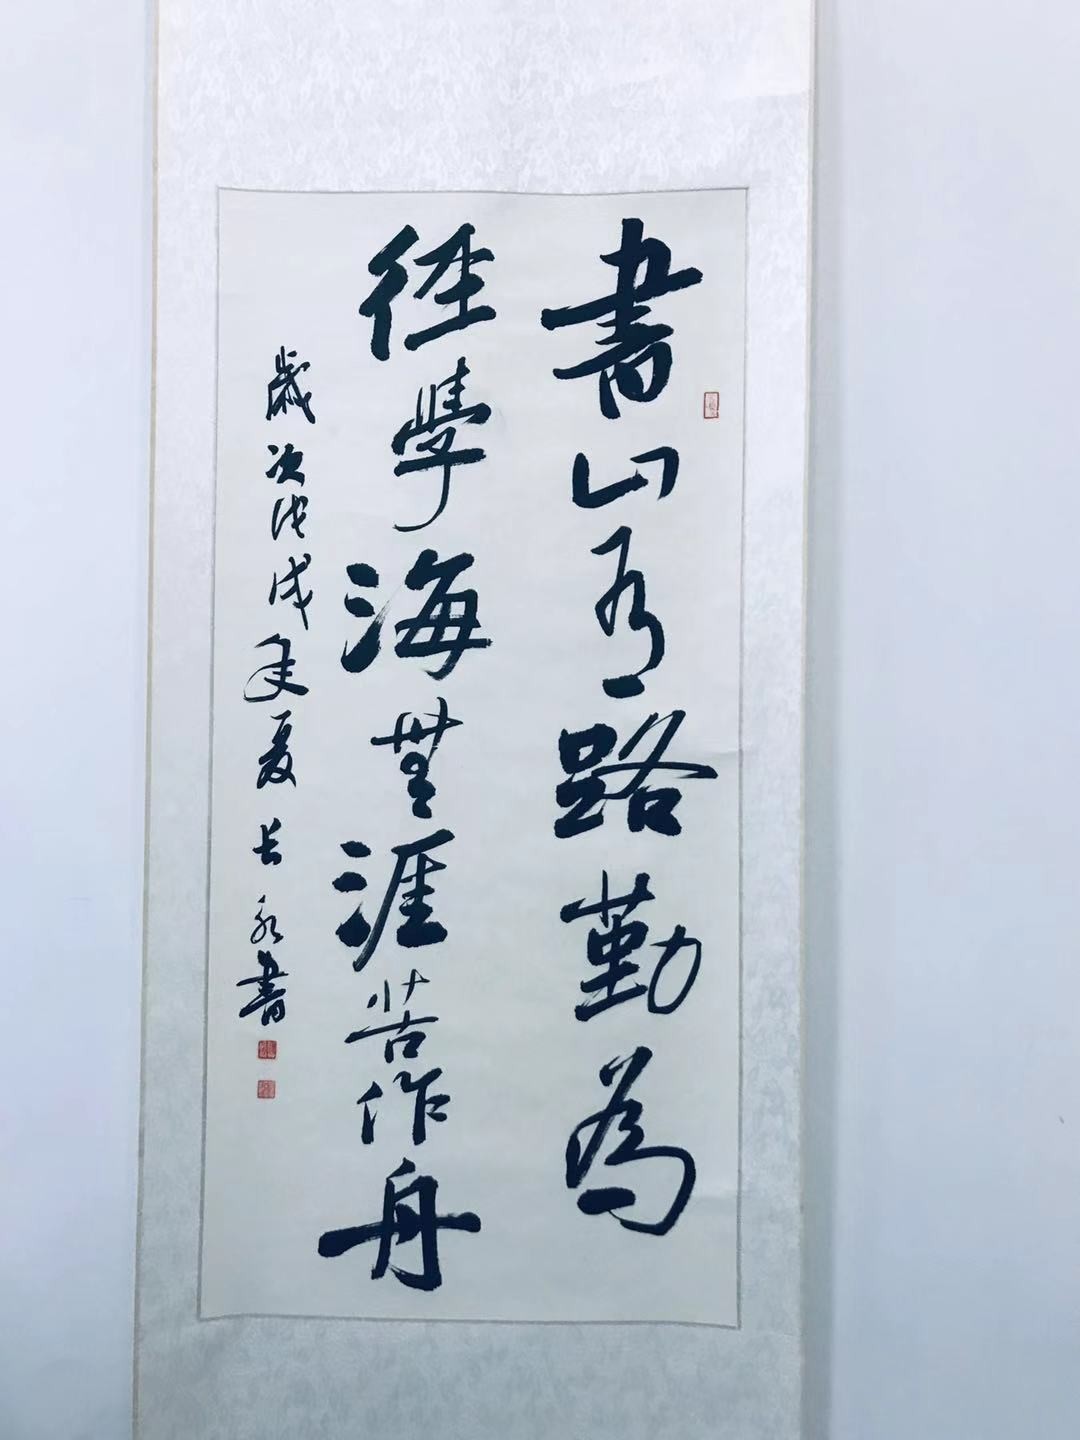 書山有路勤為
徑學海無涯苦作舟
歲次戊戌年夏 長永書